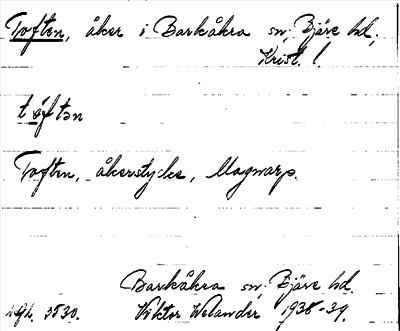 Toften, åker i Barkåkra sn, Bjäre hd,
Krist. l.
tóftən
Toften, åkerstycke, Magnarp.
Barkåkra sn, Bjäre hd.
Viktor Welander, 1938-39.